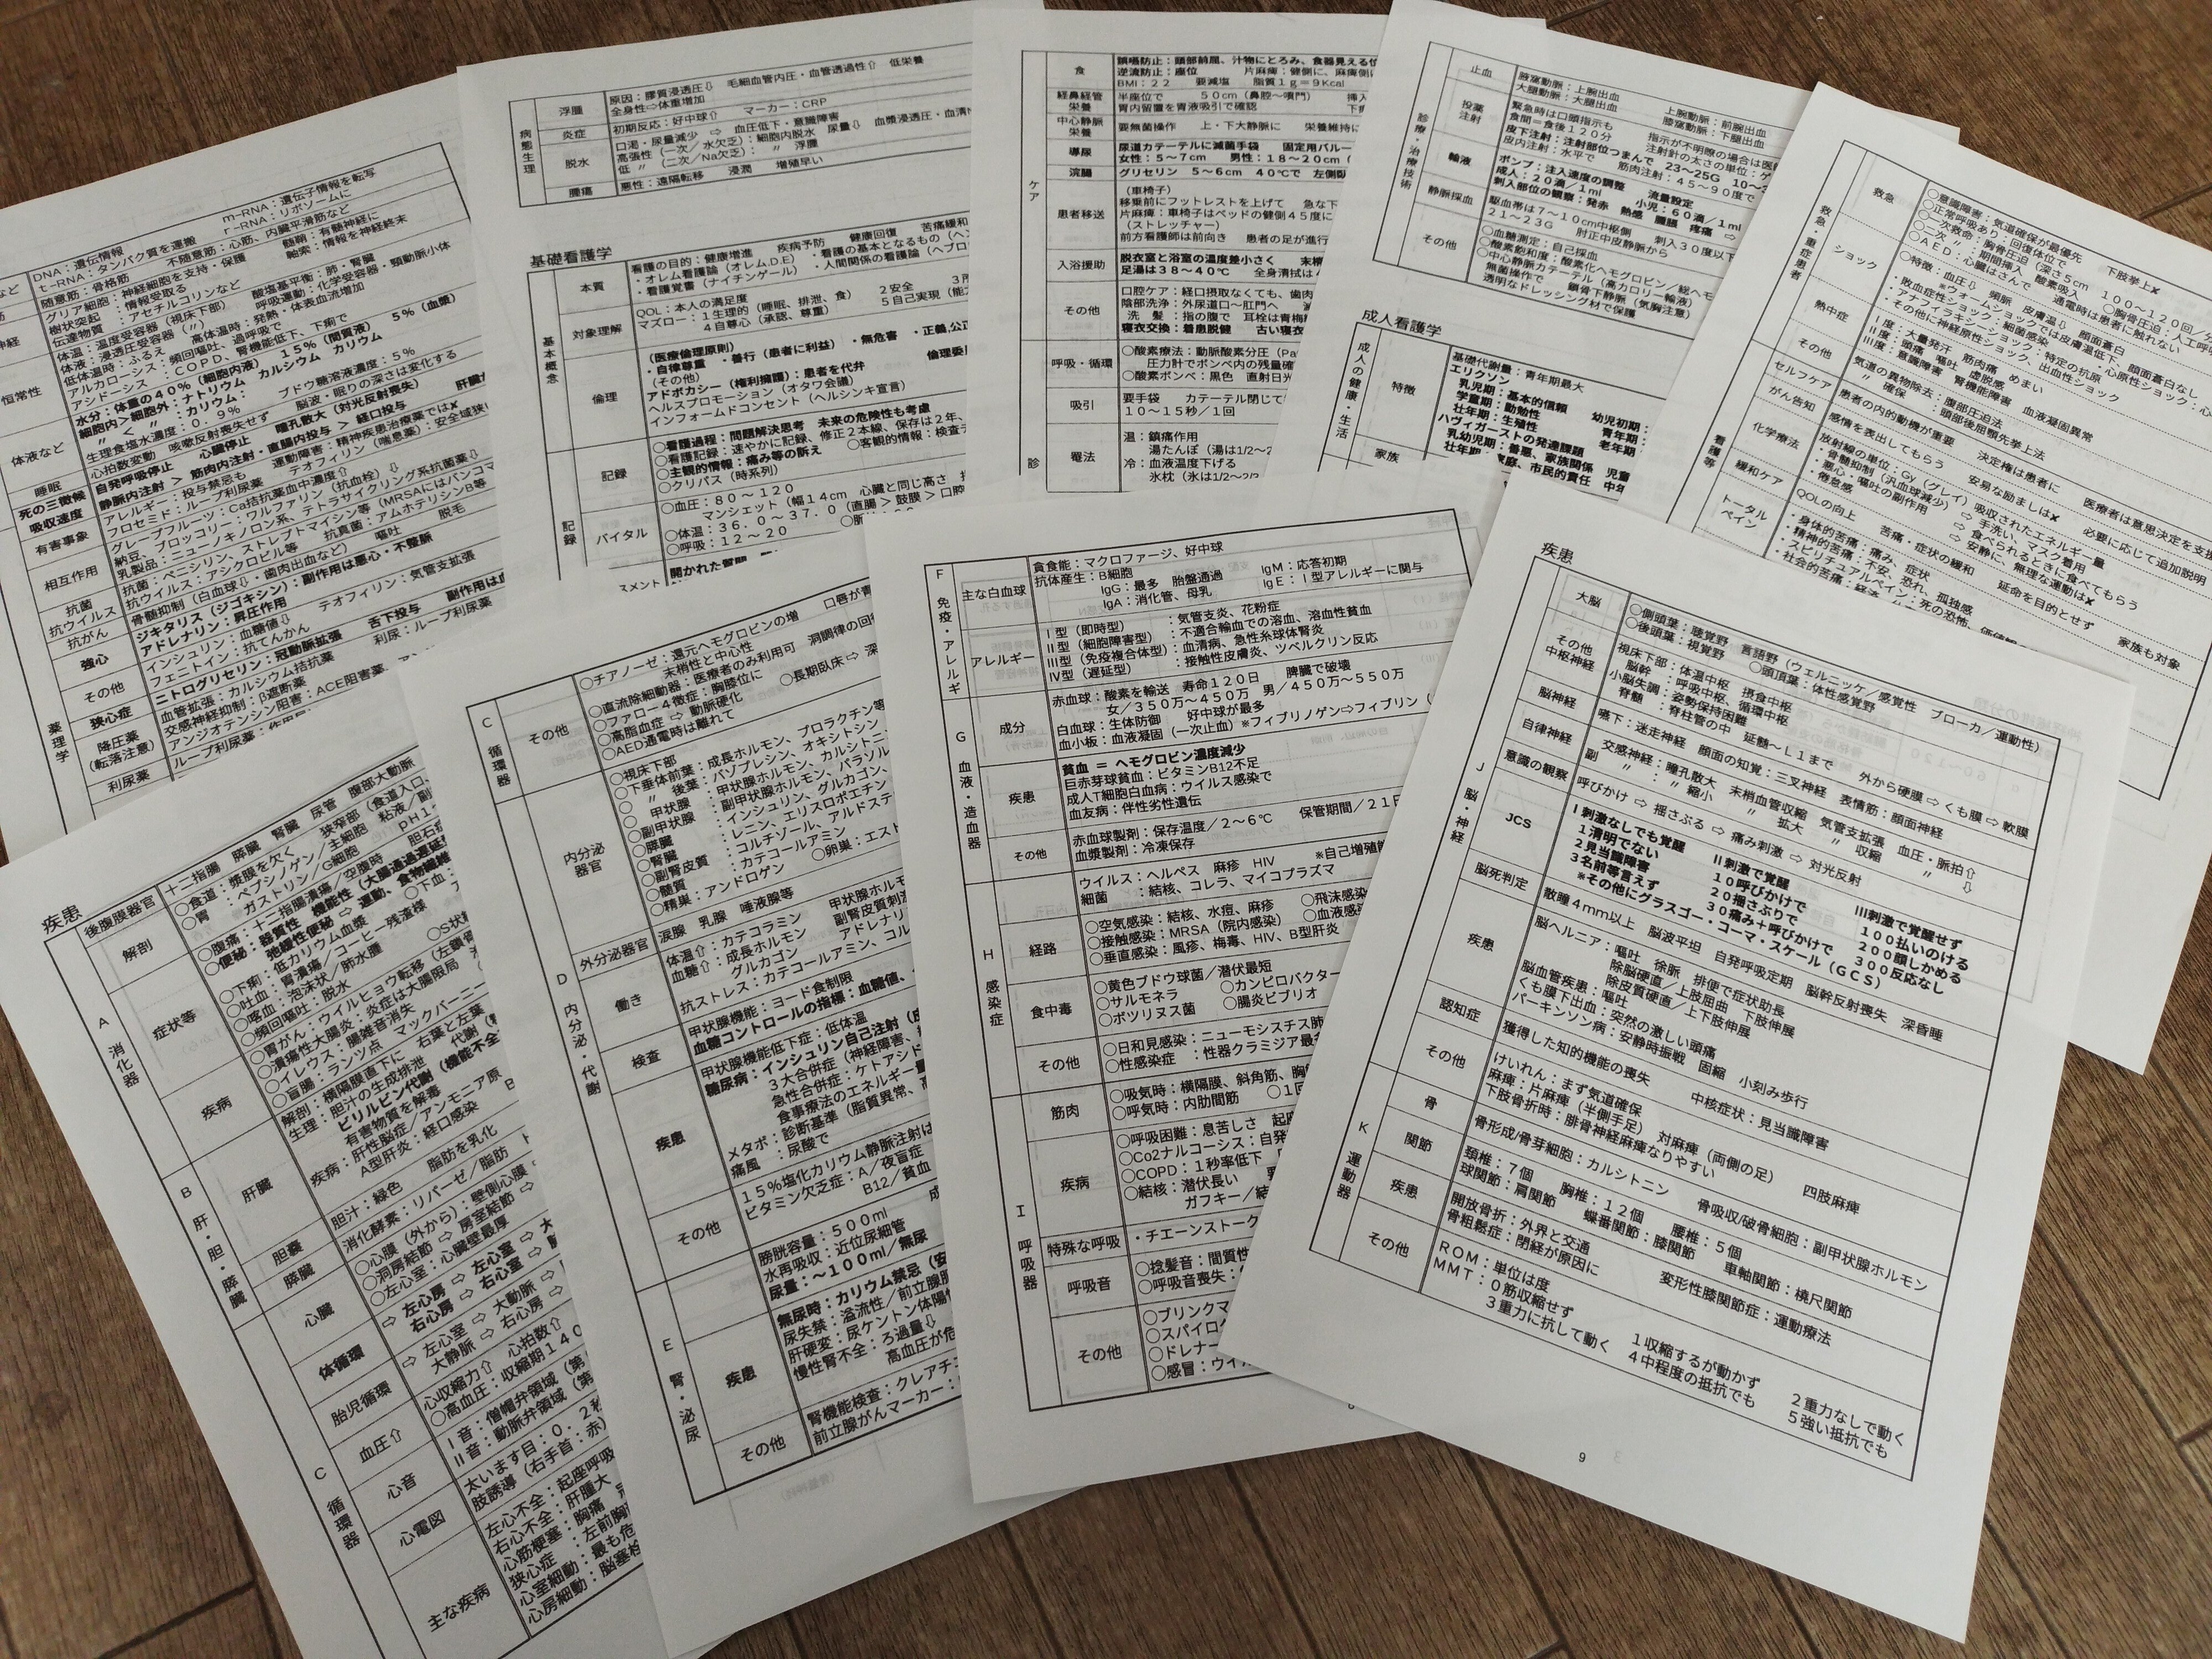 DNA：遺伝子情報　m－RNA：遺伝子情報を転写
t－RNA：タンパク質を運搬　r－RNA：リボソームに
随意筋：骨格筋　不随意筋：心筋、内臓平滑筋など
グリア細胞：神経細胞を支持・保護　髄鞘：有髄神経に
樹状突起：情報受取る　軸索：情報を神経終末
伝達物質：アセチルコリンなど
恒常性
体温：温度受容器（視床下部）　酸塩基平衡：肺・腎臓
体液：浸透圧受容器（〃）　呼吸運動：化学受容器・頸動脈小体
低体温時：ふるえ　高体温時：発熱・体表血流増加
アルカローシス：頻回嘔吐、過呼吸で
アシドーシス：COPD、腎機能低下、下痢で
体液など
水分：体重の４０％（細胞内液）　１５％（間質液）　５％（血漿）
細胞内＞細胞外：ナトリウム　カルシウム　カリウム
〃　＜　〃　：カリウム
生理食塩水濃度：０．９％　ブドウ糖溶液濃度：５％
睡眠
心拍数変動　咳嗽反射喪失せず　脳波・眠りの深さは変化する
死の三徴候
自発呼吸停止　心臓停止　瞳孔散大（対光反射喪失）
吸収速度
静脈内注射　＞　筋肉内注射・直腸内投与　＞　経口投与
有害事象
アレルギー：投与禁忌も　運動障害：精神疾患治療薬では✘
フロセミド：ループ利尿薬　テオフィリン（喘息薬）：安全域狭い
相互作用
グレープフルーツ：Ca拮抗薬血中濃度⇧
納豆、ブロッコリー：ワルファリン（抗血栓）⇩
乳製品：ニューノキノロン系、テトラサイクリング系抗菌薬⇩
抗菌
抗菌：ペニシリン、ストレプトマイシン等（MRSAにはバンコマ
抗ウイルス
抗ウイルス：アシクロビル等　抗真菌：アムホテリシンB等
抗がん
骨髄抑制（白血球⇩・歯肉出血など）　嘔吐　脱毛
強心
ジギタリス（ジゴキシン）：副作用は悪心・不整脈
アドレナリン：昇圧作用
その他
インシュリン：血糖値⇩　テオフィリン：気管支拡張
フェニトイン：抗てんかん
狭心症
ニトログリセリン：冠動脈拡張　舌下投与　副作用は
降圧薬
（転落注意）
血管拡張：カルシウム拮抗薬　利尿：ループ利尿薬
交感神経抑制：β遮断薬
アンジオテンシン阻害：ACE阻害薬
利尿薬
ループ利尿薬：作用
薬理学
病態生理
浮腫
原因：膠質浸透圧⇩　毛細血管内圧・血管透過性⇧　低栄養
全身性⇨体重増加
炎症
初期反応：好中球⇧　マーカー：CRP
脱水
口渇・尿量減少　⇨　血圧低下・意識障害
高張性（一次／水欠乏）：細胞内脱水　尿量⇩　血漿浸透圧・血清
低　〃　（二次／Na欠乏）：　〃　浮腫
腫瘍
悪性：遠隔転移　浸潤　増殖早い
基礎看護学
基本概念
本質
看護の目的：健康増進　疾病予防　健康回復　苦痛緩和
・オレム看護論（オレム.D.E）　・看護の基本となるもの（ヘン
・看護覚書（ナイチンゲール）　・人間関係の看護論（ペプロ
対象理解
QOL：本人の満足度
マズロー：１生理的（睡眠、排泄、食）　２安全　３所
４自尊心（承認、尊重）　５自己実現（能
倫理
（医療倫理原則）
・自律尊重　・善行（患者に利益）　・無危害　・正義,公正
（その他）
アドボカシー（権利擁護）：患者を代弁　倫理委
ヘルスプロモーション（オタワ会議）
インフォームドコンセント（ヘルシンキ宣言）
記録
記録
○看護過程：問題解決思考　未来の危険性も考慮
○看護記録：速やかに記録、修正２本線、保存は２年、
○主観的情報：痛み等の訴え　○客観的情報：検査デ
○クリパス（時系列）
バイタル
○血圧：８０～１２０
マンシェット（幅１４cm　心臓と同じ高さ
○体温：３６．０～３７．０（直腸＞鼓膜＞口腔
○呼吸：１２～２０
開かれた質問
ケア
食
誤嚥防止：頭部前屈、汁物にとろみ、食器見える位
逆流防止：座位　片麻痺：健側に、麻痺側に
BMI：２２　要減塩　脂質１g＝９Kcal
経鼻経管
栄養
半座位で　５０cm（鼻腔～噴門）　挿入
胃内留置を胃液吸引で確認
中心静脈
栄養
要無菌操作　上・下大静脈に　栄養維持に
導尿
尿道カテーテルに滅菌手袋　固定用バルー
女性：５～７cm　男性：１８～２０cm（
浣腸
グリセリン　５～６cm　４０℃で　左側臥
患者移送
（車椅子）
移乗前にフットレストを上げて　急な下
片麻痺：車椅子はベッドの健側４５度に
（ストレッチャー）
前方看護師は前向き　患者の足が進行
入浴援助
脱衣室と浴室の温度差小さく　末梢
足湯は３８～４０℃　全身清拭は
その他
口腔ケア：経口摂取なくても、歯肉
陰部洗浄：外尿道口～肛門へ
洗　髪　：指の腹で　耳栓は青梅
寝衣交換：着患脱健　古い寝衣
呼吸・循環
○酸素療法：動脈酸素分圧（Pa
圧力計でボンベ内の残量確
○酸素ボンベ：黒色　直射日光
吸引
要手袋　カテーテル閉じて
１０～１５秒／１回
罨法
温：鎮痛作用
湯たんぽ（湯は1/2～2
冷：血液温度下げる
氷枕（氷は1/2～2/3
診
診療・治療技術
止血
腋窩動脈：上腕出血　上腕動脈：前腕出血
大腿動脈：大腿出血　膝窩動脈：下腿出血
投薬
注射
緊急時は口頭指示も　指示が不明瞭の場合は医師
食間＝食後１２０分　注射針の太さの単位：ゲ
皮下注射：注射部位つまんで　２３～２５G　１０～３
皮内注射：水平で　筋肉注射：４５～９０度で
輸液
ポンプ：注入速度の調整　流量設定
成人：２０滴／１ml　小児：６０滴／１ml
刺入部位の観察：発赤　熱感　腫脹　疼痛
静脈採血
駆血帯は７～１０cm中枢側　刺入３０度以下
２１～２３G　肘正中皮静脈から
その他
○血糖測定：自己採血
○酸素飽和度：酸素化ヘモグロビン／総ヘモ
○中心静脈カテーテル（高カロリー輸液）
無菌操作で　鎖骨下静脈（気胸注意）
透明なドレッシング材で保護
成人看護学
成人の健康・生活
特徴
基礎代謝量：青年期最大
エリクソン
乳児期：基本的信頼　幼児初期：
学童期：勤勉性　青年期：
壮年期：生殖性　老年期：
ハヴィガーストの発達課題
乳幼児期：善悪、家族関係　児童
壮年期：家庭、市民的責任　中年
家族
救急・重症患者
救急
○意識障害：気道確保が最優先　下肢挙上✘
○正常呼吸あり：回復体位で
○一次救命：胸骨圧迫（深さ５cm　１００～１２０回／分
○二次　〃　：期間挿入　酸素吸入　○胸骨圧迫：人工呼吸
○AED：心臓はさんで　通電時は患者に触れない
ショック
○特徴：血圧⇩　頻脈　皮膚温⇩　顔面蒼白
※ウォームショックでは皮膚温低下、顔面蒼白なし
・敗血症性ショック：細菌感染
・アナフィラキシーショック：特定の抗原
・その他に神経原性ショック、出血性ショック　心原性ショック：心
熱中症
Ⅰ度：大量発汗　筋肉痛　めまい
Ⅱ度：頭痛　嘔吐　虚脱感
Ⅲ度：意識障害　腎機能障害　血液凝固異常
その他
気道の異物除去：腹部圧迫法
〃　確保　：頭部後屈顎先挙上法
看護等
セルフケア
患者の内的動機が重要　決定権は患者に　医療者は意思決定を支援
がん告知
感情を表出してもらう　安易な励ましは✘　必要に応じて追加説明
化学療法
放射線の単位：Gy（グレイ）⇨吸収されたエネルギー量
・骨髄抑制（汎血球減少）⇨手洗い、マスク着用
・悪心・嘔吐の副作用　⇨食べられるときに食べてもらう
・倦怠感　⇨安静に、無理な運動は✘
緩和ケア
QOLの向上　苦痛・症状の緩和　延命を目的とせず　家族も対象
トータル
ペイン
・身体的苦痛：痛み、症状
・精神的苦痛：不安、恐れ、孤独感
・スピリチュアルペイン：死の恐怖、価値観
・社会的苦痛：経済
疾患
A　消化器
後腹膜器官
十二指腸　膵臓　腎臓　尿管　腹部大動脈
解剖
○食道：漿膜を欠く　狭窄部（食道入口、
○胃　：ペプシノゲン／主細胞　粘液／副
ガストリン／G細胞　pH１
症状等
○腹痛：十二指腸潰瘍／空腹時　胆石症
○便秘：器質性　機能性（大腸通過遅延
弛緩性便秘⇨運動、食物繊維
○下痢：低カリウム血漿　○下血：
○吐血：胃潰瘍／コーヒー残渣様
○喀血：泡沫状／肺水腫
○頻回嘔吐：脱水　○S状
疾病
○胃がん：ウイルヒョウ転移（左鎖骨
○潰瘍性大腸炎：炎症は大腸限局
○イレウス：腸雑音消失
○盲腸：ランツ点　マックバーニー
B　肝・胆・膵臓
肝臓
解剖：横隔膜直下に　右葉と左葉
生理：胆汁の生成排泄　代謝
ビリルビン代謝（機能不全
有害物質を解毒
疾病：肝性脳症／アンモニア原
A型肝炎：経口感染　B
胆嚢
胆汁：緑色　脂肪を乳化
膵臓
消化酵素：リパーゼ／脂肪
C　循環器
心臓
○心膜（外から）：壁側心膜
○洞房結節　⇨　房室結節　⇨
○左心室：心臓壁最厚
体循環
⇨　左心房　⇨　左心室　⇨　大
右心房　⇨　右心室　⇨
胎児循環
⇨　左心室　⇨　大動脈　⇨
大静脈　⇨　右心房　⇨
血圧⇧
心収縮力⇧　心拍数⇧
○高血圧：収縮期１４０
心音
Ⅰ音：僧帽弁領域（第
Ⅱ音：動脈弁領域（第
心電図
太います目：０．２秒
肢誘導（右手首：赤）
主な疾病
左心不全：起座呼吸
右心不全：肝腫大
心筋梗塞：胸痛
狭心症　：左前胸
心室細動：最も危
心房細動：脳塞栓
C　循環器
その他
○チアノーゼ：還元ヘモグロビンの増　口唇が青
末梢性と中心性
○直流除細動器：医療者のみ利用可　洞調律の回
○ファロー４徴症：胸膝位に
○高脂血症　⇨　動脈硬化　○長期臥床　⇨　深
○AED通電時は離れて
D　内分泌・代謝
内分泌
器官
○視床下部
○下垂体前葉：成長ホルモン、プロラクチン等
○　〃　後葉：バソプレシン、オキシトシン
○甲状腺　：甲状腺ホルモン、カルシトニ
○副甲状腺：副甲状腺ホルモン、パラソル
○膵臓　：インシュリン、グルカゴン、
○腎臓　：レニン、エリスロポエチン
○副腎皮質：コルチゾール、アルドステ
○髄質　：カテコールアミン
○精巣：アンドロゲン　○卵巣：エスト
外分泌器官
涙腺　乳腺　唾液腺等
働き
体温⇧：カテコラミン　甲状腺ホルモ
血糖⇧：成長ホルモン　副腎皮質刺
グルカゴン　アドレナリ
抗ストレス：カテコールアミン、コル
検査
甲状腺機能：ヨード食制限
血糖コントロールの指標：血糖値、
疾患
甲状腺機能低下症：低体温
糖尿病：インシュリン自己注射（皮
３大合併症（神経障害、
急性合併症：ケトアシド
食事療法のエネルギー
メタボ：診断基準（脂質異常、
痛風　：尿酸で
その他
１５％塩化カリウム静脈注射は
ビタミン欠乏症：A／夜盲症
B12／貧血
E　腎・泌尿
膀胱容量：５００ml
水再吸収：近位尿細管
尿量：～１００ml／無尿
疾患
無尿時：カリウム禁忌（安
尿失禁：溢流性／前立腺
肝硬変：尿ケントン体陽
慢性腎不全：ろ過量⇩
高血圧が危
その他
腎機能検査：クレアチニ
前立腺がんマーカー：
F　免疫・アレルギ
主な白血球
貪食能：マクロファージ、好中球
抗体産生：B細胞
IgG：最多　胎盤通過　IgM：応答初期
IgA：消化管、母乳　IgE：Ⅰ型アレルギーに関与
アレルギー
Ⅰ型（即時型）　：気管支炎、花粉症
Ⅱ型（細胞障害型）：不適合輸血での溶血、溶血性貧血
Ⅲ型（免疫複合体型）：血清病、急性糸球体腎炎
Ⅳ型（遅延型）　：接触性皮膚炎、ツベルクリン反応
G　血液・造血器
成分
赤血球：酸素を輸送　寿命１２０日　脾臓で破壊
女／３５０万～４５０万　男／４５０万～５５０万
白血球：生体防御　好中球が最多
血小板：血液凝固（一次止血）※フィブリノゲン⇨フィブリン（
疾患
貧血　＝　ヘモグロビン濃度減少
巨赤芽球貧血：ビタミンB12不足
成人T細胞白血病：ウイルス感染で
血友病：伴性劣性遺伝
その他
赤血球製剤：保存温度／２～６℃　保管期間／２１日
血漿製剤：冷凍保存
H　感染症
ウイルス：ヘルペス　麻疹　HIV　※自己増殖能
細菌　：結核、コレラ、マイコプラズマ
経路
○空気感染：結核、水痘、麻疹　○飛沫感染
○接触感染：MRSA（院内感染）　○血液感染
○垂直感染：風疹、梅毒、HIV、B型肝炎
食中毒
○黄色ブドウ球菌／潜伏最短
○サルモネラ　○カンピロバクター
○ボツリヌス菌　○腸炎ビブリオ
その他
○日和見感染：ニューモシスチス肺
○性感染症　：性器クラミジア最
I　呼吸器
筋肉
○吸気時：横隔膜、斜角筋、胸
○呼気時：内肋間筋　○１回
疾病
○呼吸困難：息苦しさ　起座
○Co2ナルコーシス：自発
○COPD：１秒率低下
○結核：潜伏長い
ガフキー／結
特殊な呼吸
・チエーンストーク
呼吸音
○捻髪音：間質性
○呼吸音喪失：
その他
○ブリンクマ
○スパイロ
○ドレナー
○感冒：ウイ
疾患
J　脳・神経
大脳
○側頭葉：聴覚野　言語野（ウェルニッケ／感覚性　ブローカ／運動性）
○後頭葉：視覚野　○頭頂葉：体性感覚野
その他
中枢神経
視床下部：体温中枢　摂食中枢
脳幹　：呼吸中枢、循環中枢
小脳失調：姿勢保持困難
脊髄　：脊柱管の中　延髄～L１まで　外から硬膜⇨くも膜⇨軟膜
脳神経
嚥下：迷走神経　顔面の知覚：三叉神経　表情筋：顔面神経
自律神経
交感神経：瞳孔散大　末梢血管収縮　気管支拡張　血圧・脈拍⇧
副　〃　：　〃　縮小　〃　拡大　〃　収縮　〃　⇩
意識の観察
呼びかけ　⇨　揺さぶる　⇨　痛み刺激　⇨　対光反射
JCS
Ⅰ刺激なしでも覚醒　Ⅱ刺激で覚醒　Ⅲ刺激で覚醒せず
１清明でない　１０呼びかけで　１００払いのける
２見当識障害　２０揺さぶりで　２００顔しかめる
３名前等言えず　３０痛み＋呼びかけで　３００反応なし
※その他にグラスゴー・コーマ・スケール（GCS）
脳死判定
散瞳４mm以上　脳波平坦　自発呼吸定期　脳幹反射喪失　深昏睡
疾患
脳ヘルニア：嘔吐　徐脈　排便で症状助長
除脳硬直／上肢屈曲　下肢伸展
除皮質硬直／上下肢伸展
脳血管疾患：嘔吐
くも膜下出血：突然の激しい頭痛
パーキンソン病：安静時振戦　固縮　小刻み歩行
認知症
獲得した知的機能の喪失　中核症状：見当識障害
その他
けいれん：まず気道確保
麻痺：片麻痺（半側手足）　対麻痺（両側の足）　四肢麻痺
下肢骨折時：腓骨神経麻痺なりやすい
K　運動器
骨
骨形成/骨芽細胞：カルシトニン　骨吸収/破骨細胞：副甲状腺ホルモン
関節
頚椎：７個　胸椎：１２個　腰椎：５個
球関節：肩関節　蝶番関節：膝関節　車軸関節：橈尺関節
疾患
開放骨折：外界と交通
骨粗鬆症：閉経が原因に　変形性膝関節症：運動療法
その他
ROM：単位は度
MMT：０筋収縮せず　１収縮するが動かず　２重力なしで動く
３重力に抗して動く　４中程度の抵抗でも　５強い抵抗でも
9